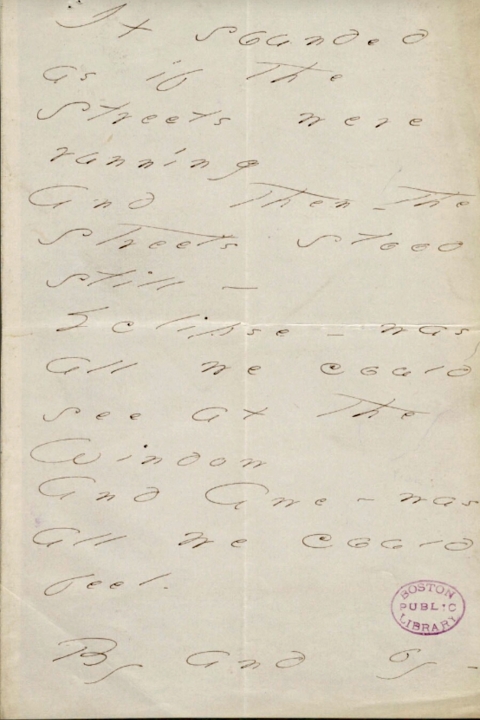 It sounded
as if the
streets were
running
And then - the
streets stood
still -
Eclipse - was
all we could
see at the
Window
And Awe - was
all we could
feel.
By and by -
BOSTON
PUBLIC
LIBRARY